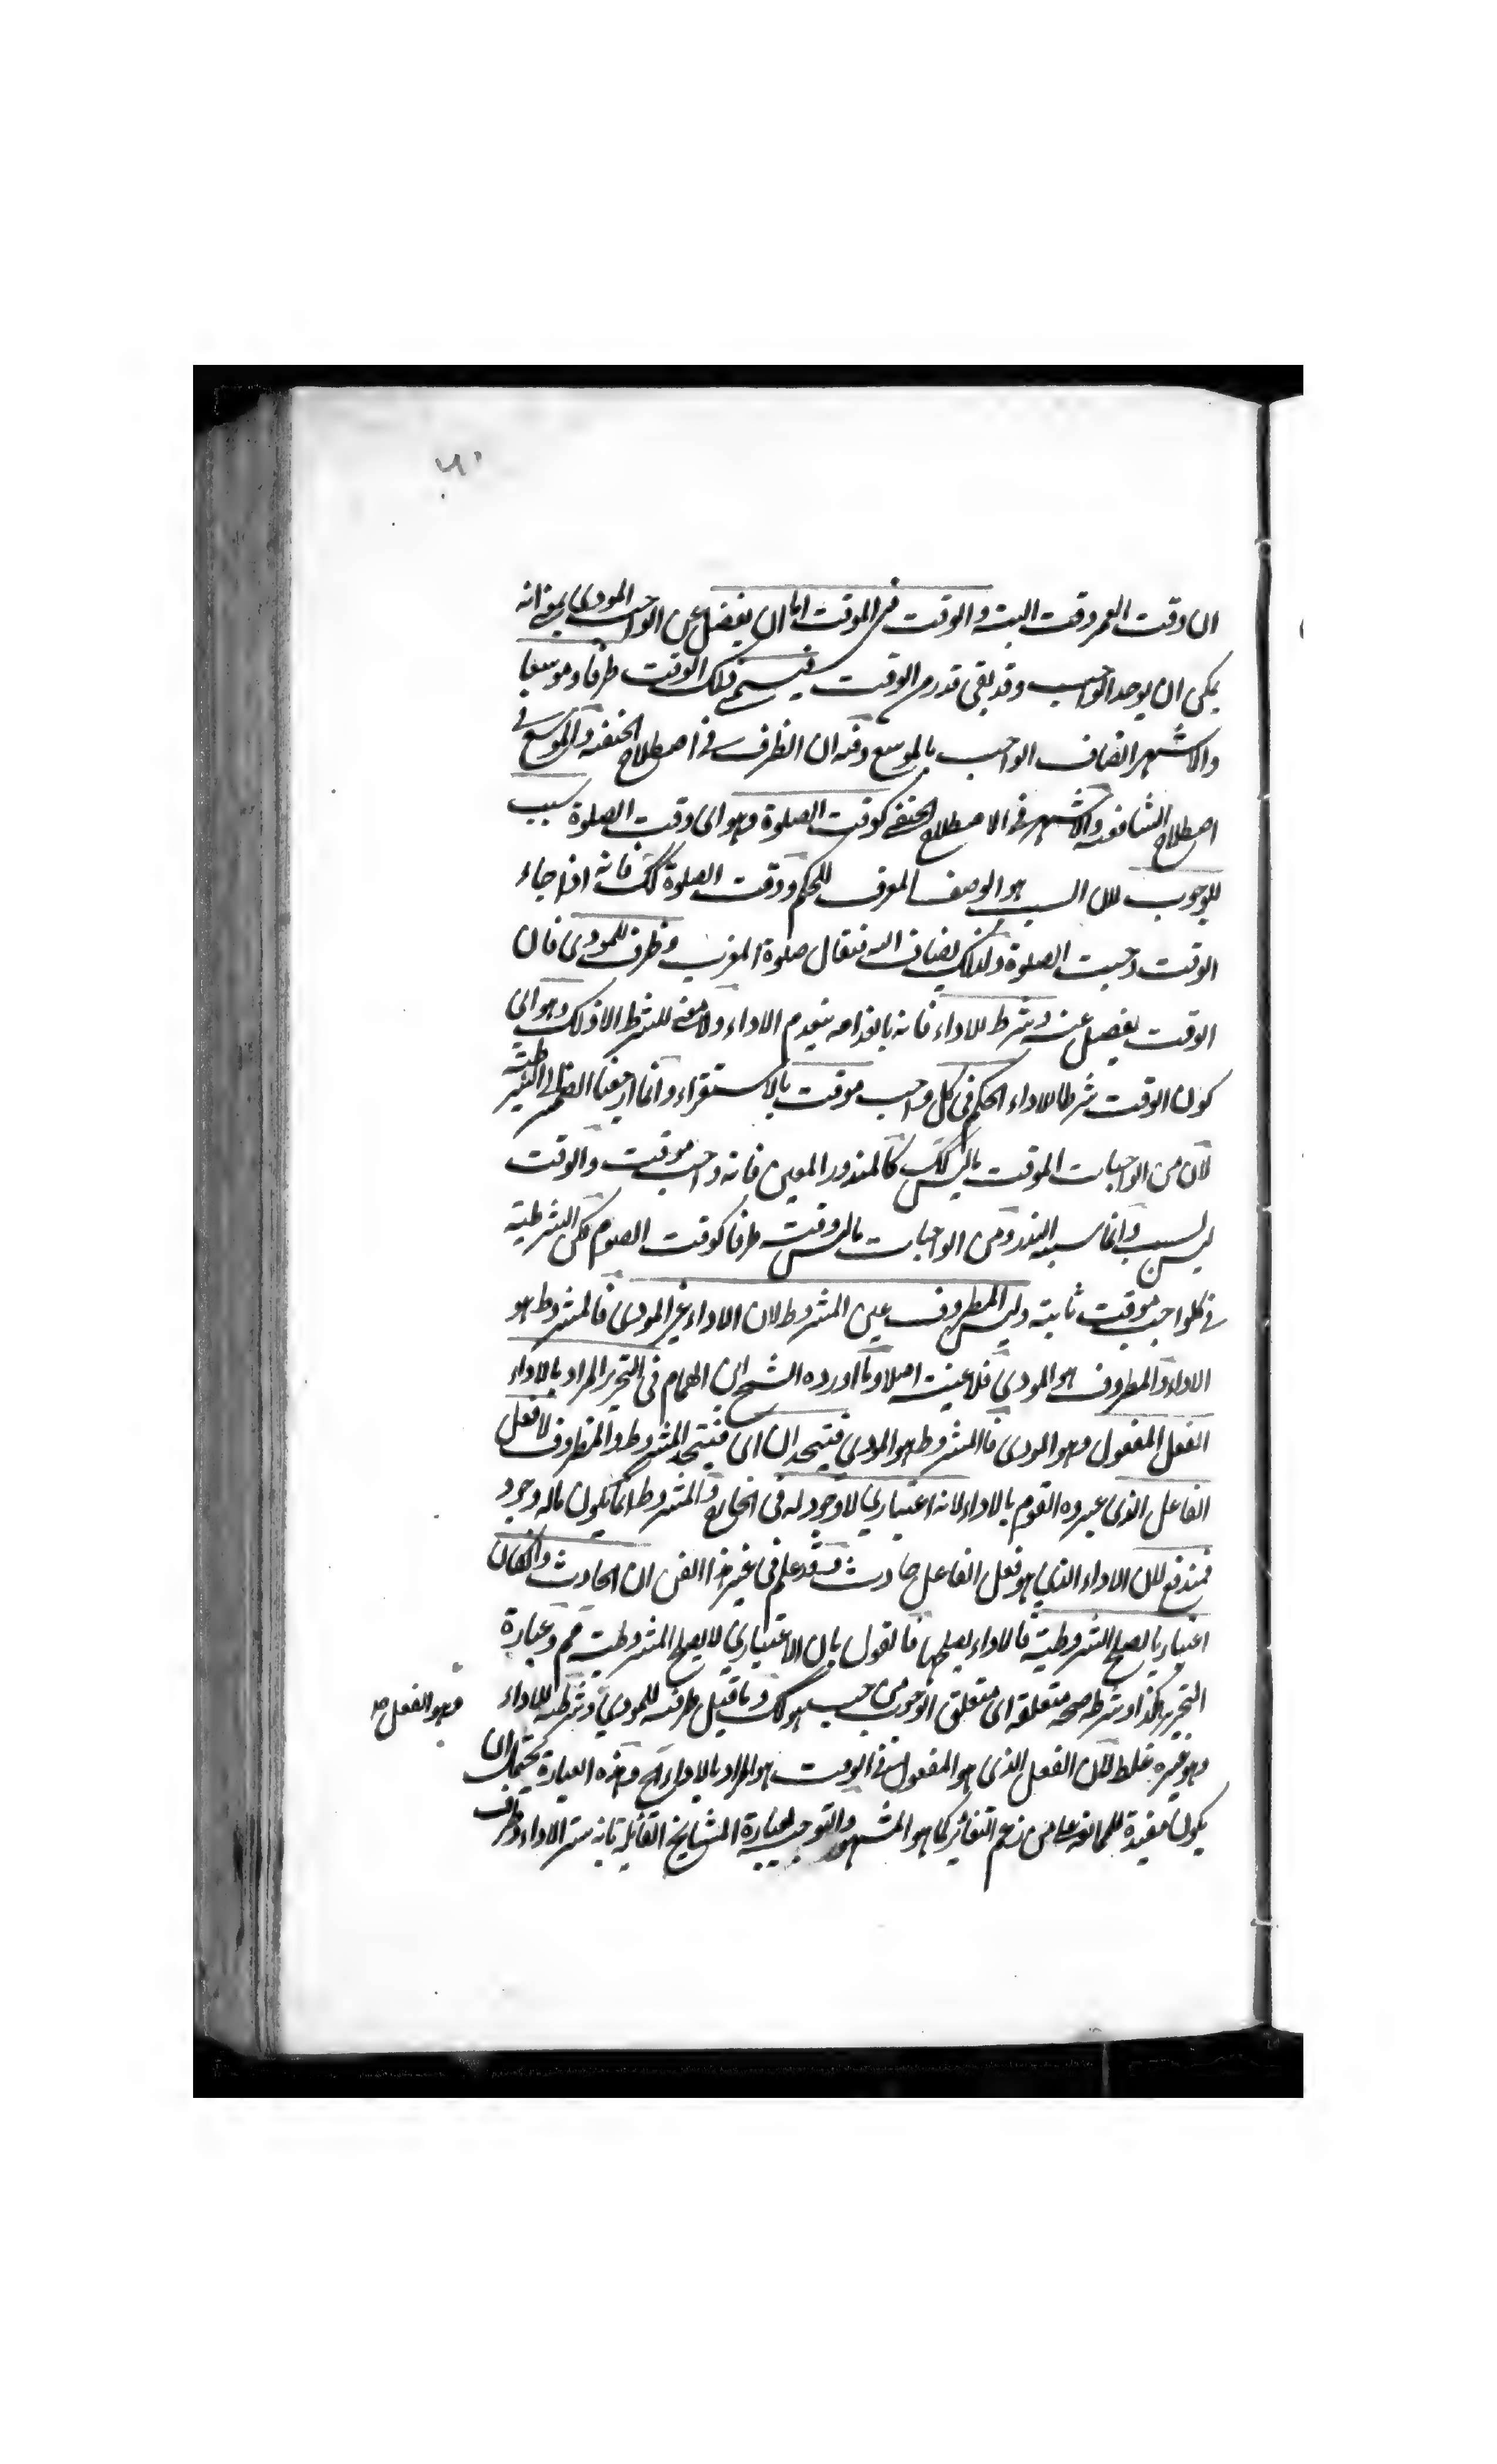 ان وقت العمر وقت البتة والوقت في الموقت اما ان يفضل عن الواجب المودى بمعنى انه
يمكن ان يوجد الواجب وقد بقى قدر من الوقت فيسمى ذلك الوقت ظرفا وموسعا
والاشهر اتصاف الواجب بالموسع وفيه ان الظرف في اصطلاح الحنفية والموسع في
اصطلاح الشافعية والاشهر في الاصطلاح الحنفي كوقت الصلوة وهو اى وقت الصلوة سبب
للوجوب لان السبب هو الوصف المعرف للحكم ووقت الصلوة كك فانه اذا جاء
الوقت وجبت الصلوة ولذلك يضاف اليه فيقال صلوة المغرب وظرف للمودى فان
الوقت يفضل عنه وشرط للاداء فانه بانعدامه ينعدم الاداء ولا معنى للشرط الا ذلك وهو اى
كون الوقت شرطا للاداء الحكم في كل واجب موقت بالاستقراء وانما ارجعنا الضمير الى الشرطية
لان من الواجبات الموقت ما ليس كك كالمنذور المعين فانه واجب موقت والوقت
ليس بسبب وانما سببه النذر ومن الواجبات ما ليس وقت ظرفا كوقت الصوم لكن الشرطية
في كل واجب موقت ثابتة وليس المظروف عين المشروط لان الاداء غير المودى فالمشروط هو
الاداء والمظروف هو المودى فلا عينية اصلا وما اورده الشيخ ابن الهمام في التحرير المراد بالاداء
الفعل المفعول وهو المودى فالمشروط هو المودى فيتحدان اى فيتحد المشروط والمظروف لا فعل
الفاعل الذى عبروه القوم بالاداء لانه اعتبارى لا وجود له في الخارج والمشروط انما يكون ما له وجود
فمندفع لان الاداء الذى هو فعل الفاعل حادث وقد علم في غير هذا الفن ان الحادث وان كان
اعتباريا يصلح للمشروطية فالاداء يصلحها فالقول بان الاعتبارى لا يصلح المشروطية مم وعبارة
التحرير هكذا وشرط صحة متعلقه اى متعلق الوجوب من حيث هو كك وما قيل ظرفيته للمودى وشرطيته للاداء
وهو الفعل صح
وهو غيره غلط لان الفعل الذى هو المفعول في الوقت هو المراد بالاداء اه وهذه العبارة يحتمل ان
يكون مفيدة للممانعة على من زعم التغاير كما هو المشهور والتوجيه لعبارة المشايخ القائلة بانه شرط الاداء وظرف